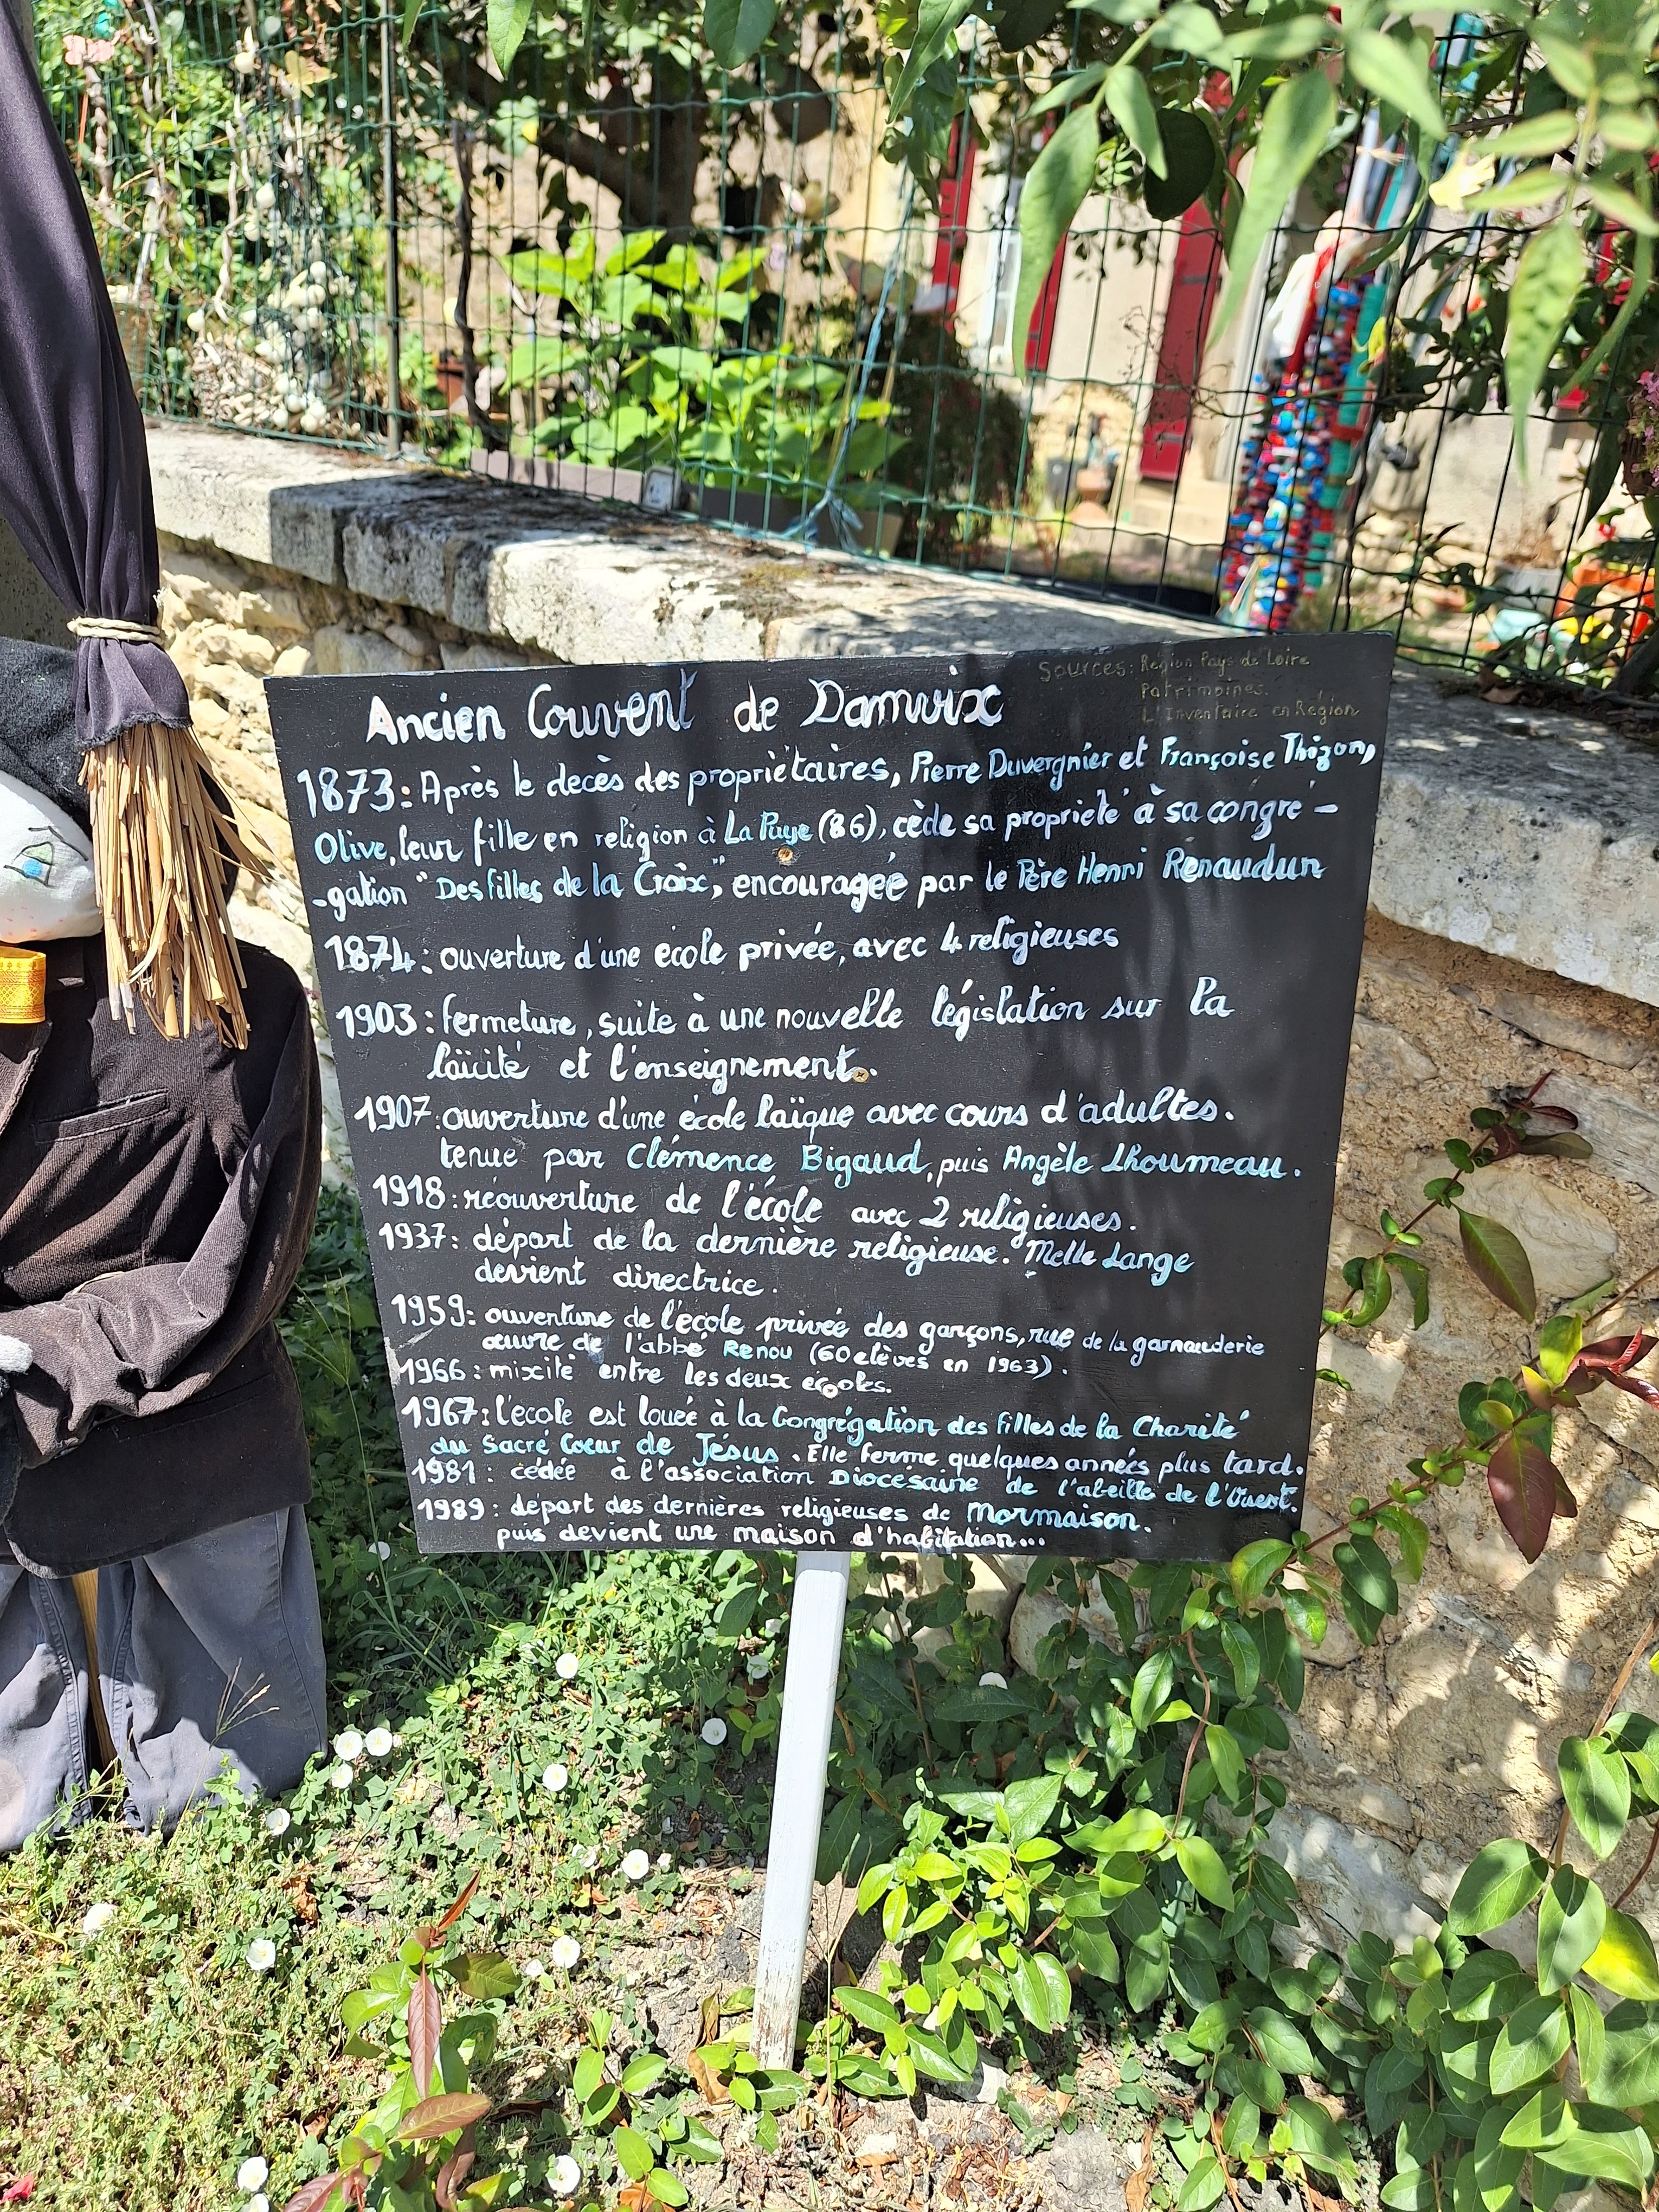 Ancien Couvent de Damvix
Sources: Région Pays de Loire
Patrimoines.
L'Inventaire en Région
1873: Après le decès des propriètaires, Pierre Duvergnier et Françoise Thizon,
Olive, leur fille en religion à La Puye (86), cède sa propriété à sa congré-
-gation "Des filles de la Croix", encouragée par le Père Henri Renaudun
1874: ouverture d'une école privée, avec 4 religieuses
1903: fermeture, suite à une nouvelle législation sur la
laïcité et l'enseignement.
1907: ouverture d'une école laïque avec cours d'adultes.
tenue par Clémence Bigaud, puis Angèle Lhoumeau.
1918: réouverture de l'école avec 2 religieuses.
1937: départ de la dernière religieuse. Melle Lange
devient directrice.
1959: ouverture de l'école privée des garçons, rue de la garnauderie
œuvre de l'abbé Renou (60 elèves en 1963).
1966: mixité entre les deux ecoles.
1967: l'école est louée à la Congrégation des filles de la Charité
du Sacré Coeur de Jésus. Elle ferme quelques années plus tard.
1981: cédée à l'association Diocésaine de l'abeille de l'Ouest.
1989: départ des dernières religieuses de Mormaison.
puis devient une maison d'habitation...